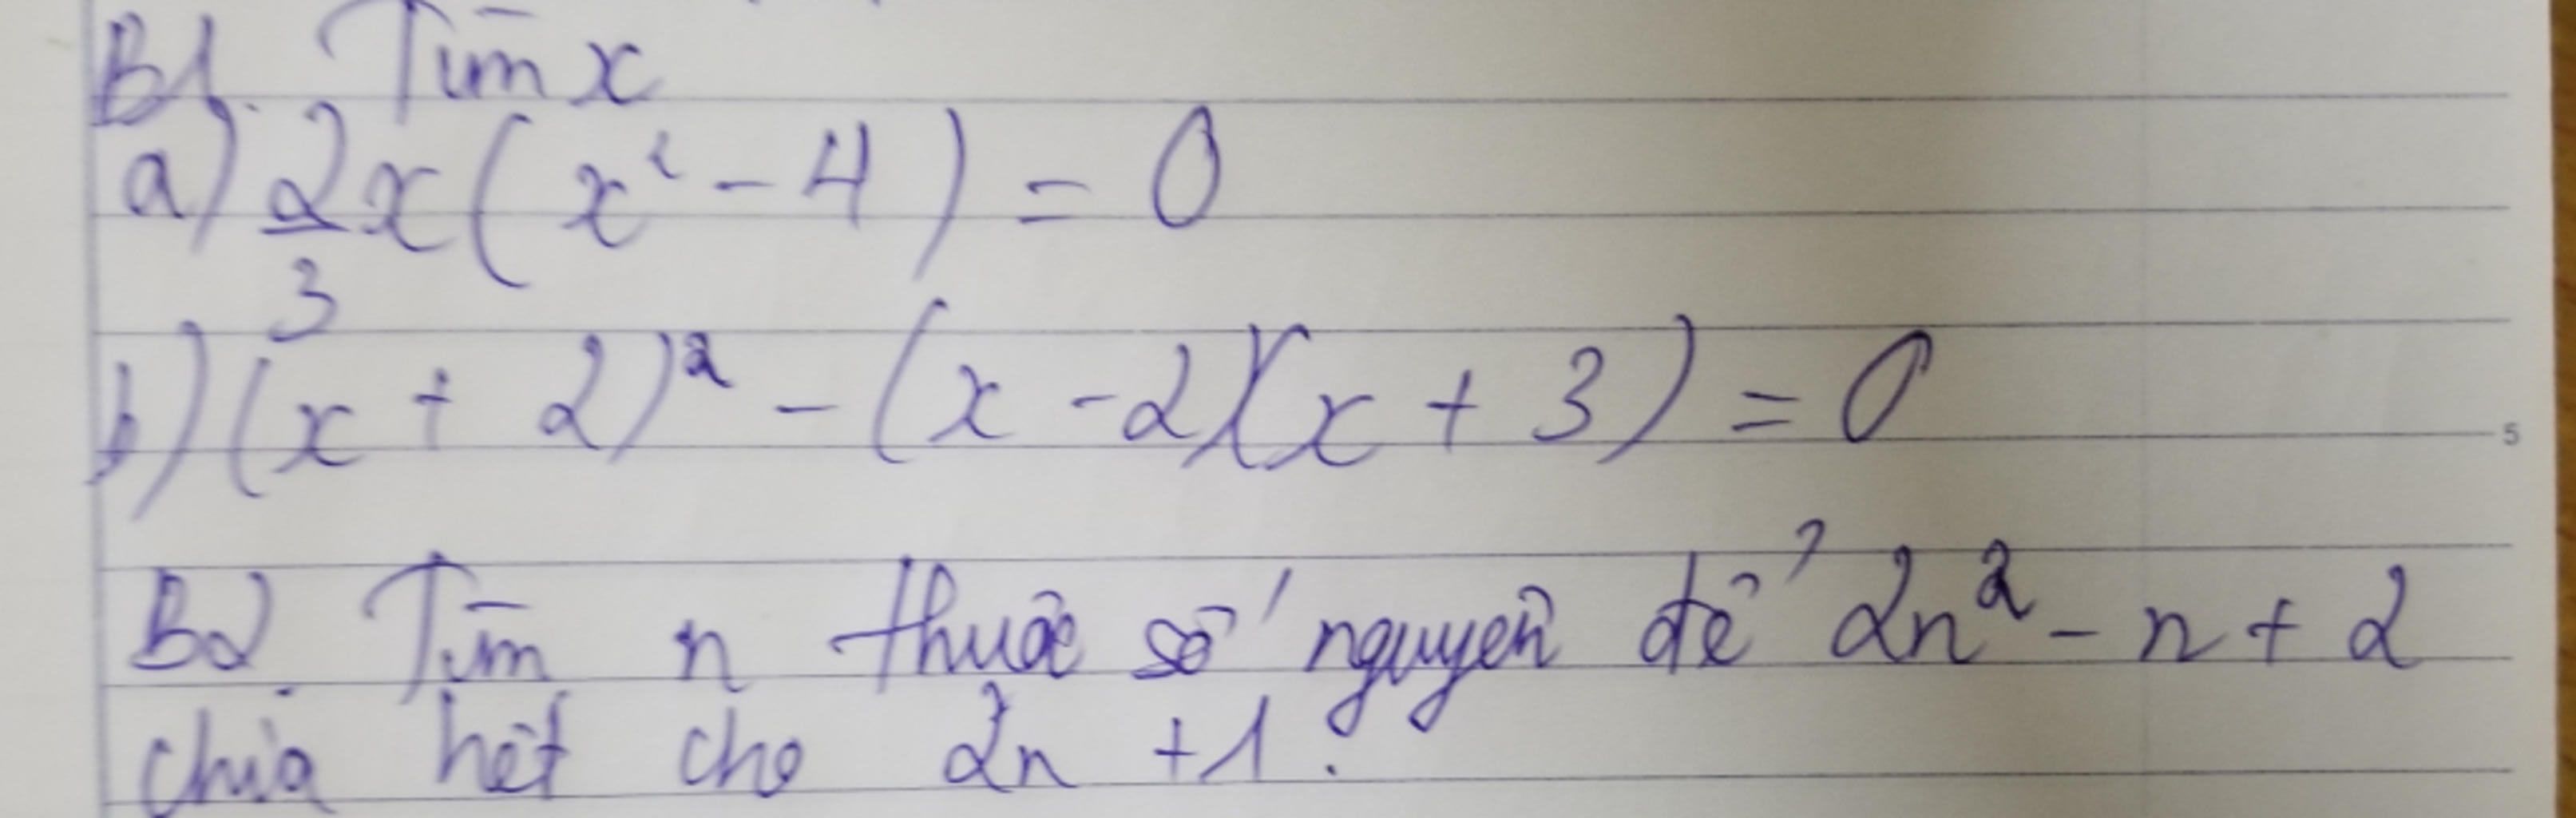 B1. Tìm x
a) 2/3 x ( x² - 4 ) = 0
b) (x + 2)² - (x - 2)(x + 3) = 0
5
B2. Tìm n thuộc số nguyên để 2n² - n + 2
chia hết cho 2n + 1.